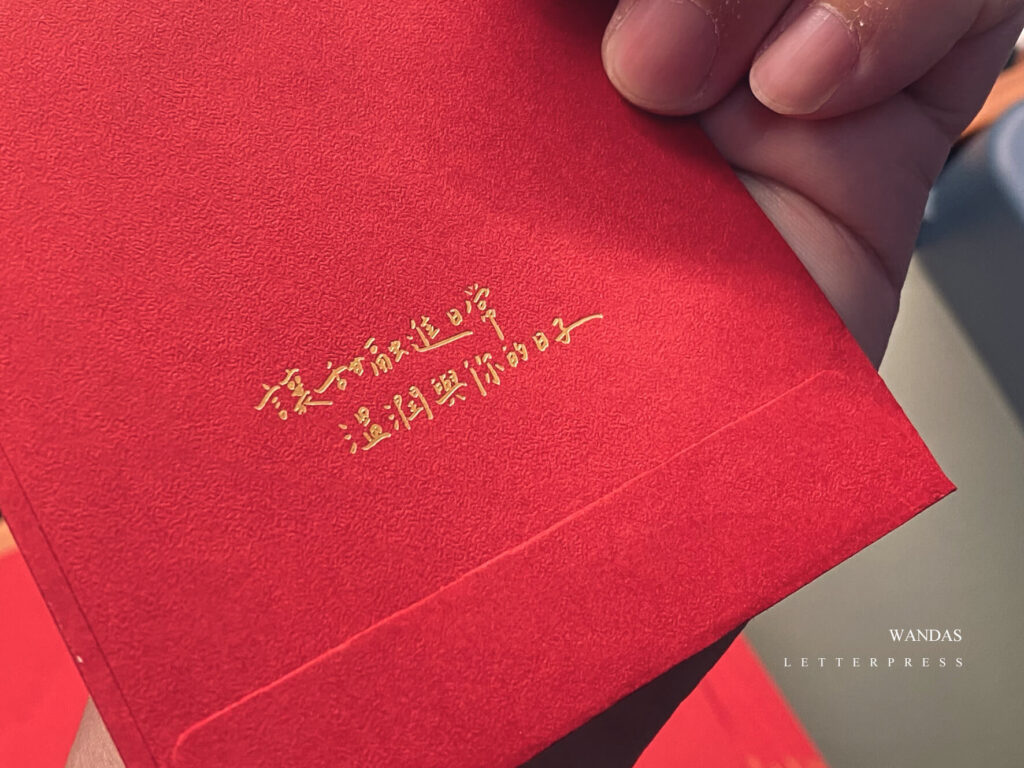 讓甜融進日常
溫潤與你的日子
WANDAS
LETTERPRESS